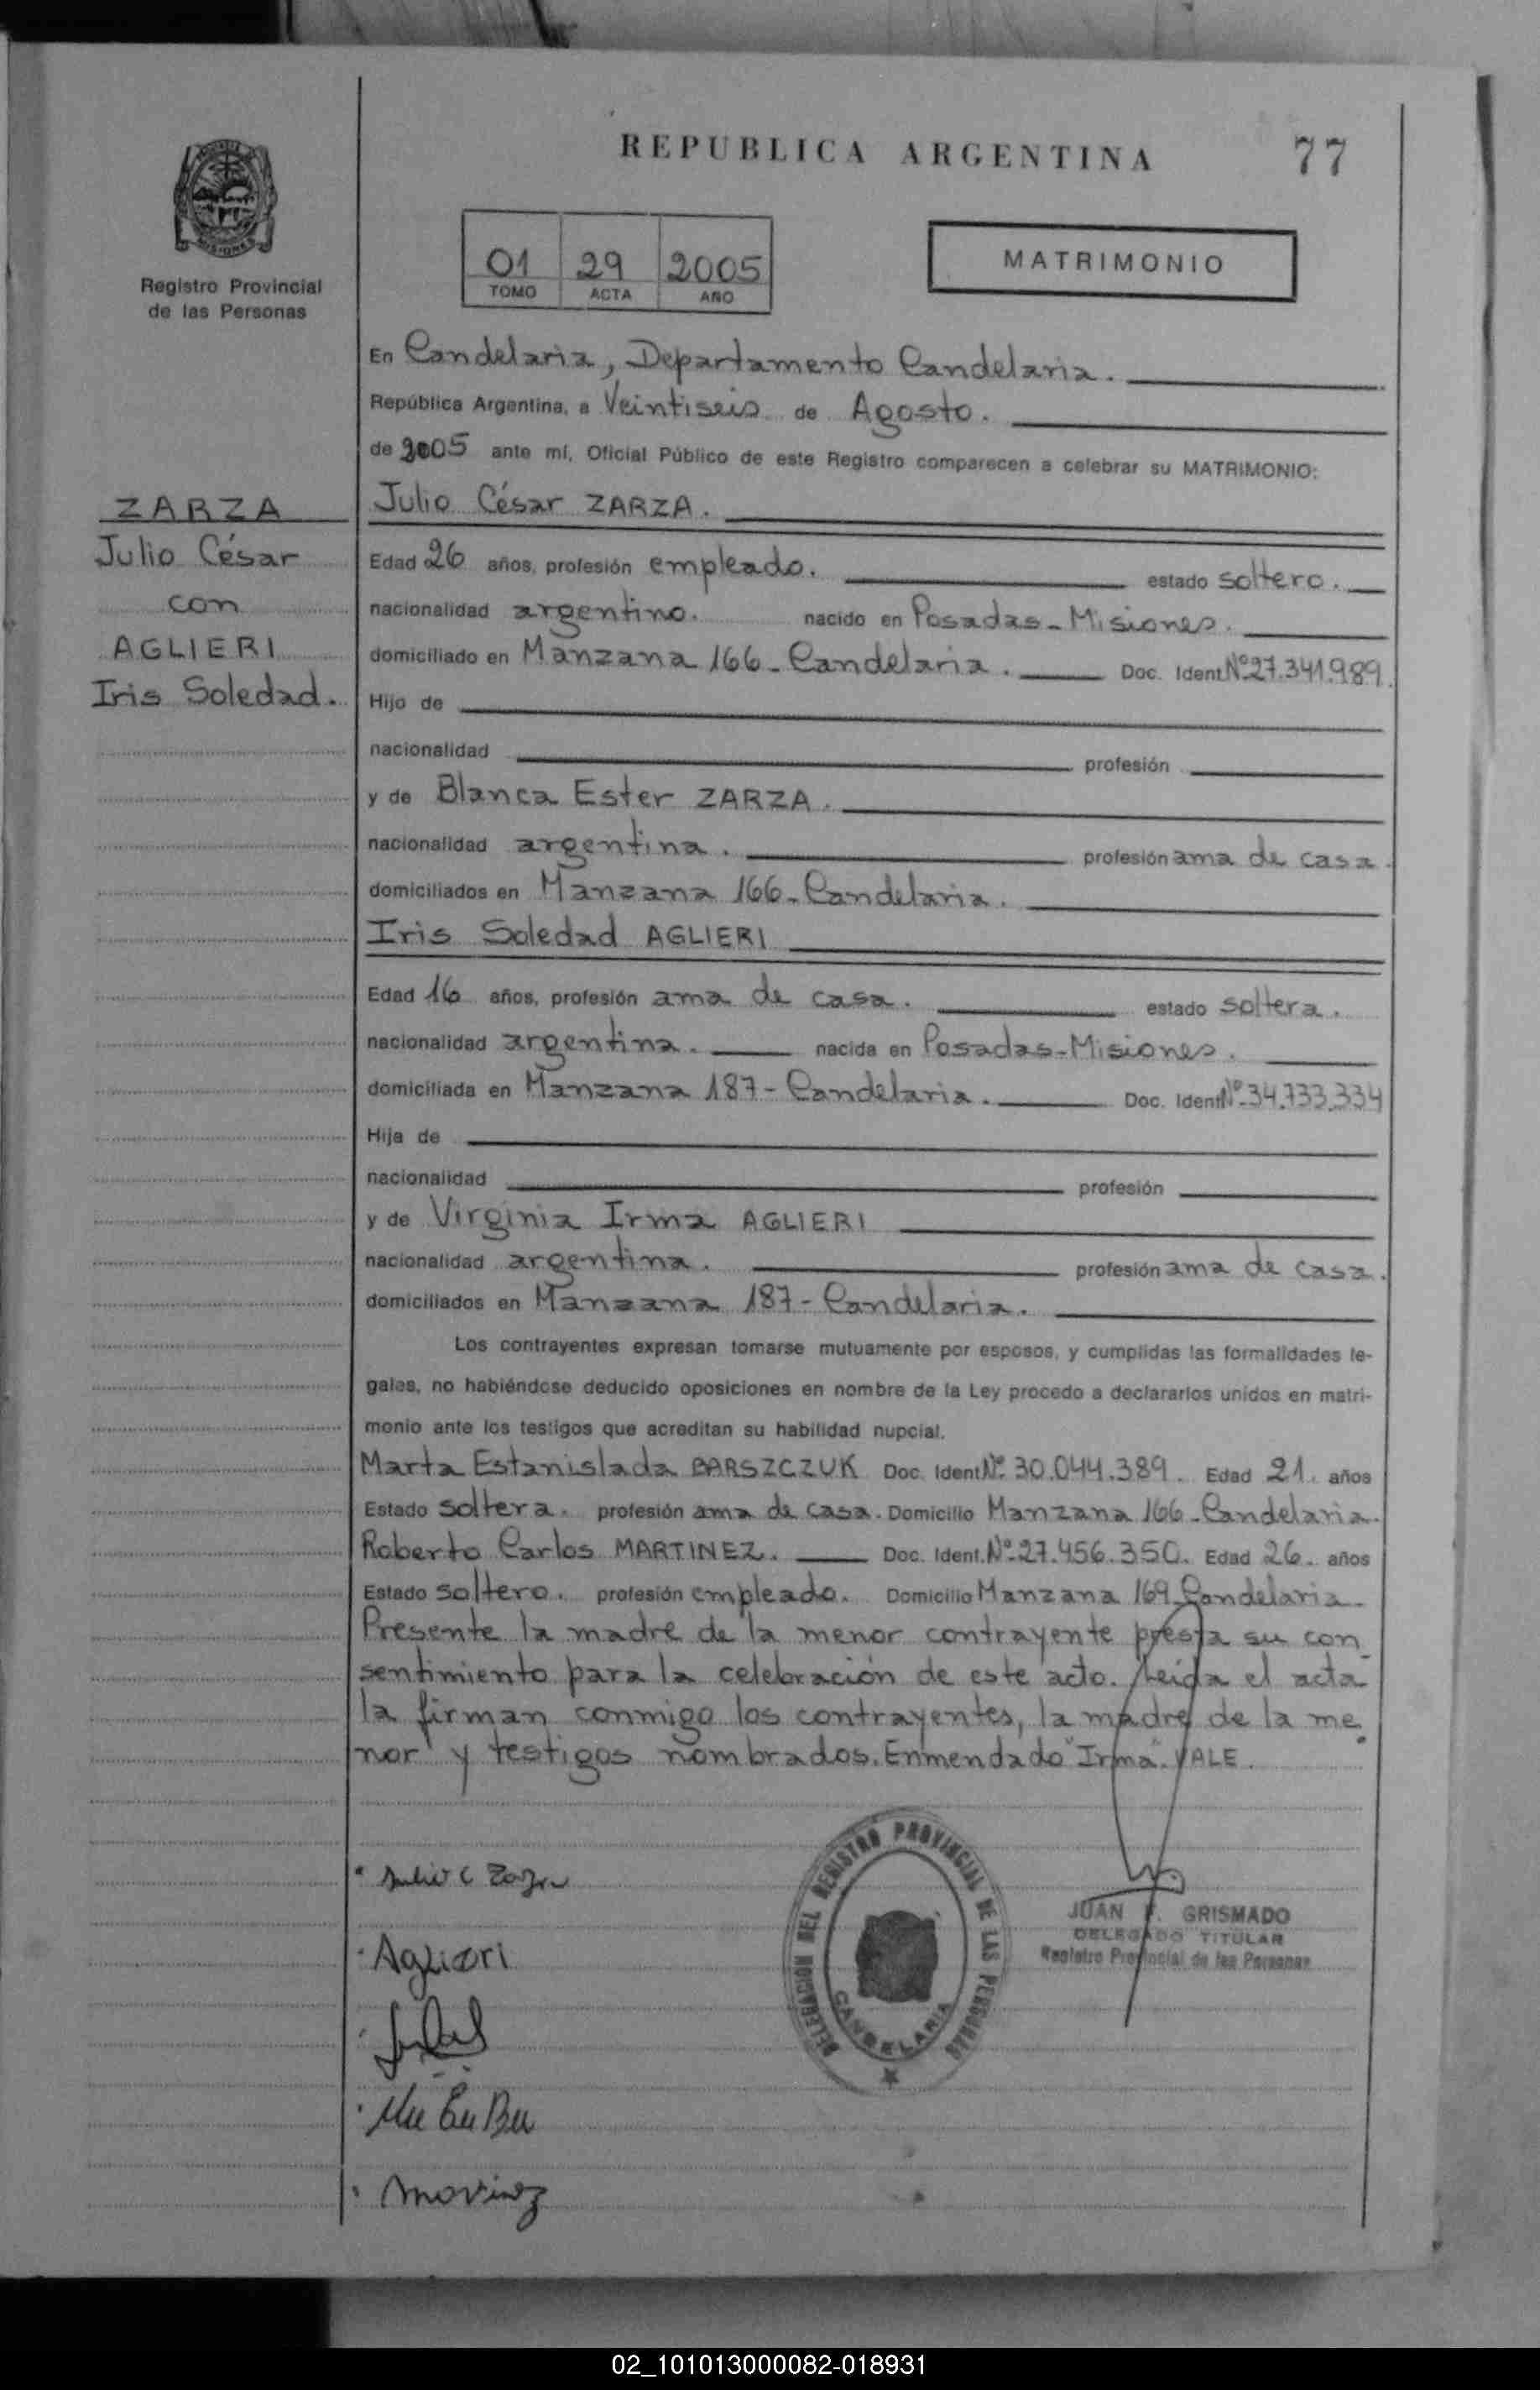 REPUBLICA ARGENTINA 77
MISIONES
Registro Provincial
de las Personas
01 29 2005
TOMO ACTA AÑO
MATRIMONIO
En Candelaria, Departamento Candelaria.
República Argentina, a Veintiseis de Agosto.
de 2005 ante mí, Oficial Público de este Registro comparecen a celebrar su MATRIMONIO:
ZARZA
Julio César
con
AGLIERI
Iris Soledad.
Julio César ZARZA.
Edad 26 años, profesión empleado. estado soltero.
nacionalidad argentino. nacido en Posadas-Misiones.
domiciliado en Manzana 166-Candelaria. Doc. Ident Nº27.341.989.
Hijo de
nacionalidad profesión
y de Blanca Ester ZARZA.
nacionalidad argentina. profesión ama de casa.
domiciliados en Manzana 166-Candelaria.
Iris Soledad AGLIERI
Edad 16 años, profesión ama de casa. estado soltera.
nacionalidad argentina. nacida en Posadas-Misiones.
domiciliada en Manzana 187-Candelaria. Doc. Ident Nº34.733.334
Hija de
nacionalidad profesión
y de Virginia Irma AGLIERI
nacionalidad argentina. profesión ama de casa.
domiciliados en Manzana 187-Candelaria.
Los contrayentes expresan tomarse mutuamente por esposos, y cumplidas las formalidades le-
gales, no habiéndose deducido oposiciones en nombre de la Ley procedo a declararlos unidos en matri-
monio ante los testigos que acreditan su habilidad nupcial.
Marta Estanislada BARSZCZUK Doc. Ident Nº 30.044.389. Edad 21. años
Estado soltera. profesión ama de casa. Domicilio Manzana 166-Candelaria.
Roberto Carlos MARTINEZ. Doc. Ident. Nº27.456.350. Edad 26. años
Estado soltero. profesión empleado. Domicilio Manzana 169-Candelaria.
Presente la madre de la menor contrayente presta su con
sentimiento para la celebración de este acto. Leída el acta
la firman conmigo los contrayentes, la madre de la me
nor y testigos nombrados. Enmendado "Irma". VALE.
Julio C Zarza
Aglieri
DELEGACION DEL REGISTRO PROVINCIAL DE LAS PERSONAS
CANDELARIA
JUAN F. GRISMADO
DELEGADO TITULAR
Registro Provincial de las Personas
02_101013000082-018931